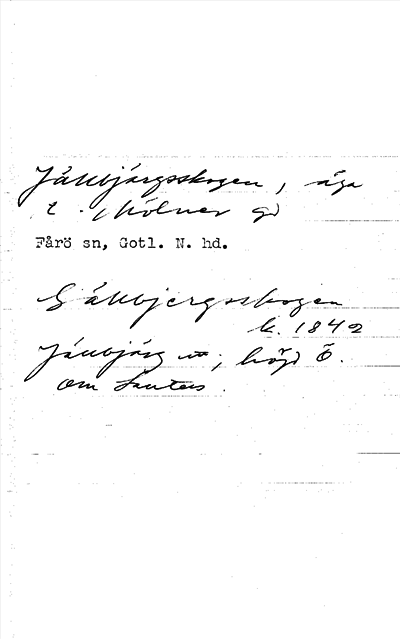 Jäubjärgsskogen, äga
t. Mölner gd
Fårö sn, Gotl. N. hd.
Gäubjergsskogen
k. 1842
Jäubjärg; höjd Ö.
om Lauters.